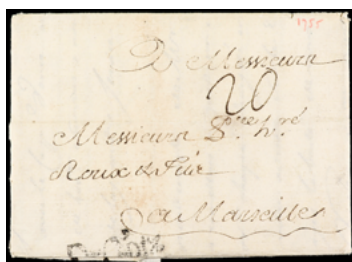 1755
A Messieurs
20
Messieurs
Roux & Fils
a Marseille